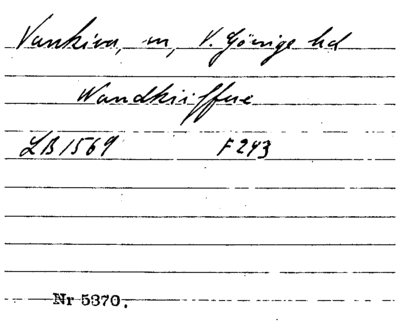 Vankiva, sn, V. Göinge hd
Wandkiiffue
LB 1569 F 243
Nr 5370.